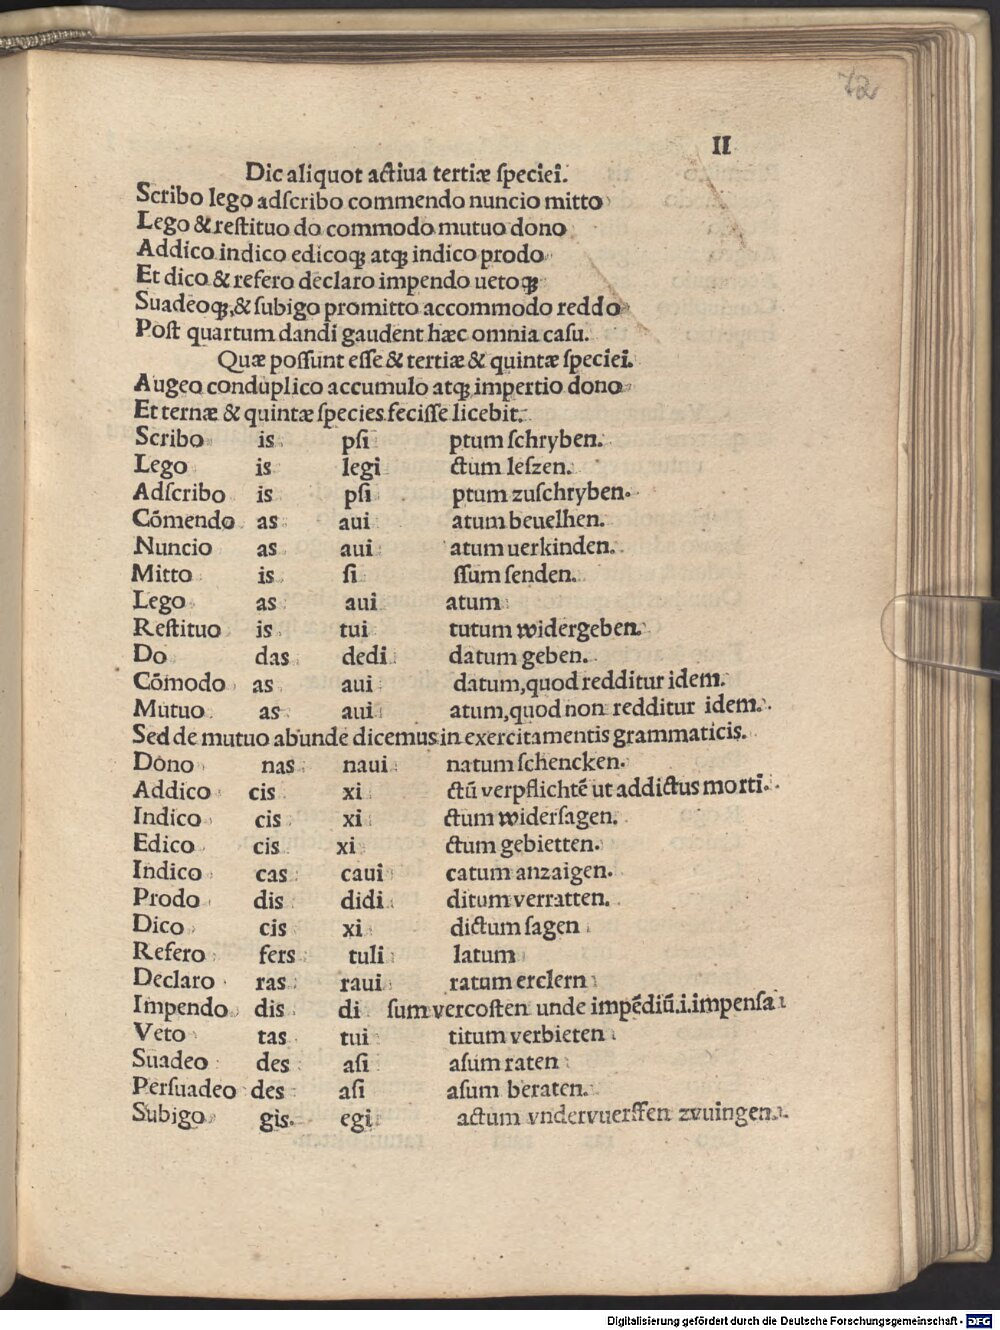 72
II
Dic aliquot actiua tertiæ ſpeciei.
Scribo lego adſcribo commendo nuncio mitto
Lego & reſtituo do commodo mutuo dono
Addico indico edicoqꝫ atqꝫ indico prodo
Et dico & refero declaro impendo uetoqꝫ
Suadeoqꝫ,& ſubigo promitto accommodo reddo
Poſt quartum dandi gaudent hæc omnia caſu.
Quæ poſſunt eſſe & tertiæ & quintæ ſpeciei.
Augeo conduplico accumulo atqꝫ impertio dono
Et ternæ & quintæ ſpecies feciſſe licebit.
Scribo is pſi ptum ſchryben.
Lego is legi ctum leſzen.
Adſcribo is pſi ptum zuſchryben.
Cōmendo as aui atum beuelhen.
Nuncio as aui atum uerkinden.
Mitto is ſi ſſum ſenden.
Lego as aui atum
Reſtituo is tui tutum widergeben.
Do das dedi datum geben.
Cōmodo as aui datum,quod redditur idem.
Mutuo as aui atum,quod non redditur idem.
Sed de mutuo abunde dicemus in exercitamentis grammaticis.
Dono nas naui natum ſchencken.
Addico cis xi ctū verpflichtē ut addictus morti.
Indico cis xi ctum widerſagen.
Edico cis xi ctum gebietten.
Indico cas caui catum anzaigen.
Prodo dis didi ditum verratten.
Dico cis xi dictum ſagen
Refero fers tuli latum
Declaro ras raui ratum erclern
Impendo dis di ſum vercoſten unde impēdiū.i.impenſa
Veto tas tui titum verbieten
Suadeo des aſi aſum raten
Perſuadeo des aſi aſum beraten.
Subigo gis. egi actum vndervuerffen zvuingen.
Digitalisierung gefördert durch die Deutsche Forschungsgemeinschaft - DFG